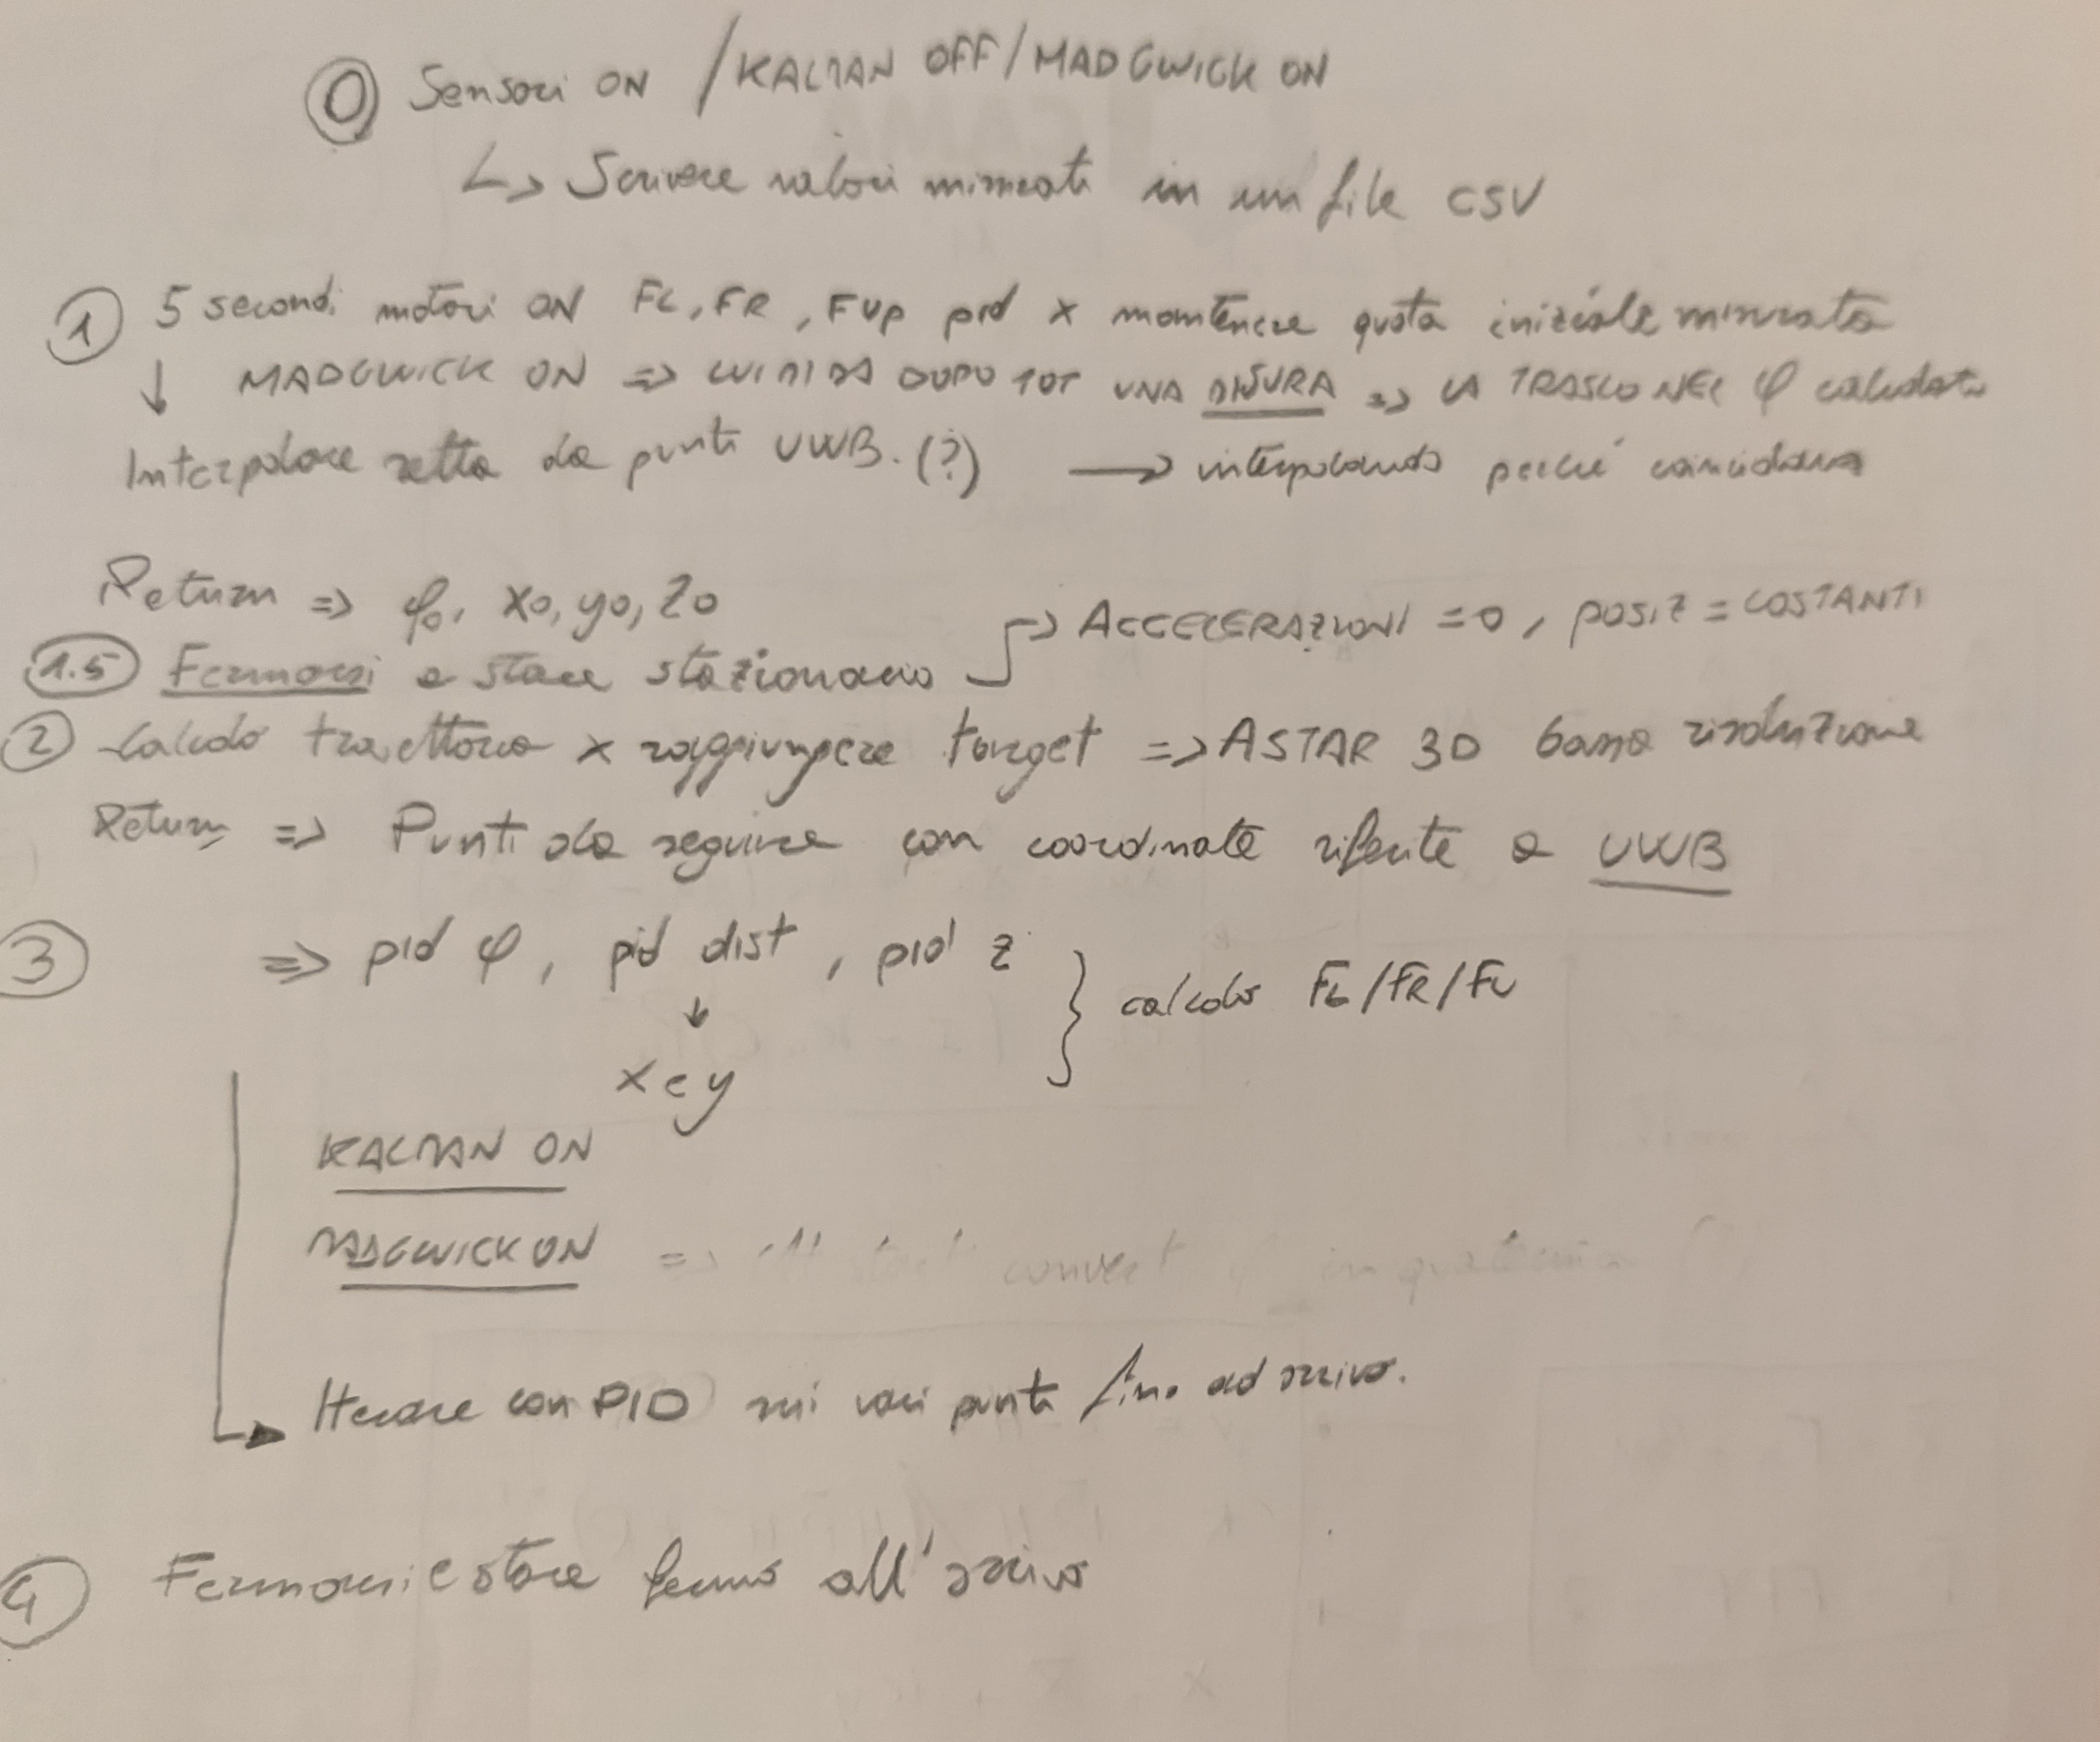 0 Sensori ON / KALMAN OFF / MADGWICK ON
↳ Scrivere valori misurati in un file CSV
1 5 secondi motori ON FL, FR, Fup pid x mantenere quota iniziale misurata
↓ MADGWICK ON => LUI MI DA DOPO TOT UNA MISURA => LA TRASLO NEL φ calcolato
Interpolare retta da punti UWB. (?) → interpolando perché coincidano
Return => φ0, x0, y0, z0
1.5 Fermarsi e stare stazionario → ACCELERAZIONI = 0, POSIZ = COSTANTI
2 Calcolo traiettoria x raggiungere target => ASTAR 3D bassa risoluzione
Return => Punti da seguire con coordinate riferite a UWB
3 => pid φ, pid dist, pid z } calcolo FL/FR/FU
↓
x e y
KALMAN ON
MADGWICK ON => convert in
Iterare con PID sui vari punti fino ad arrivo.
4 Fermarsi e stare fermo all'arrivo